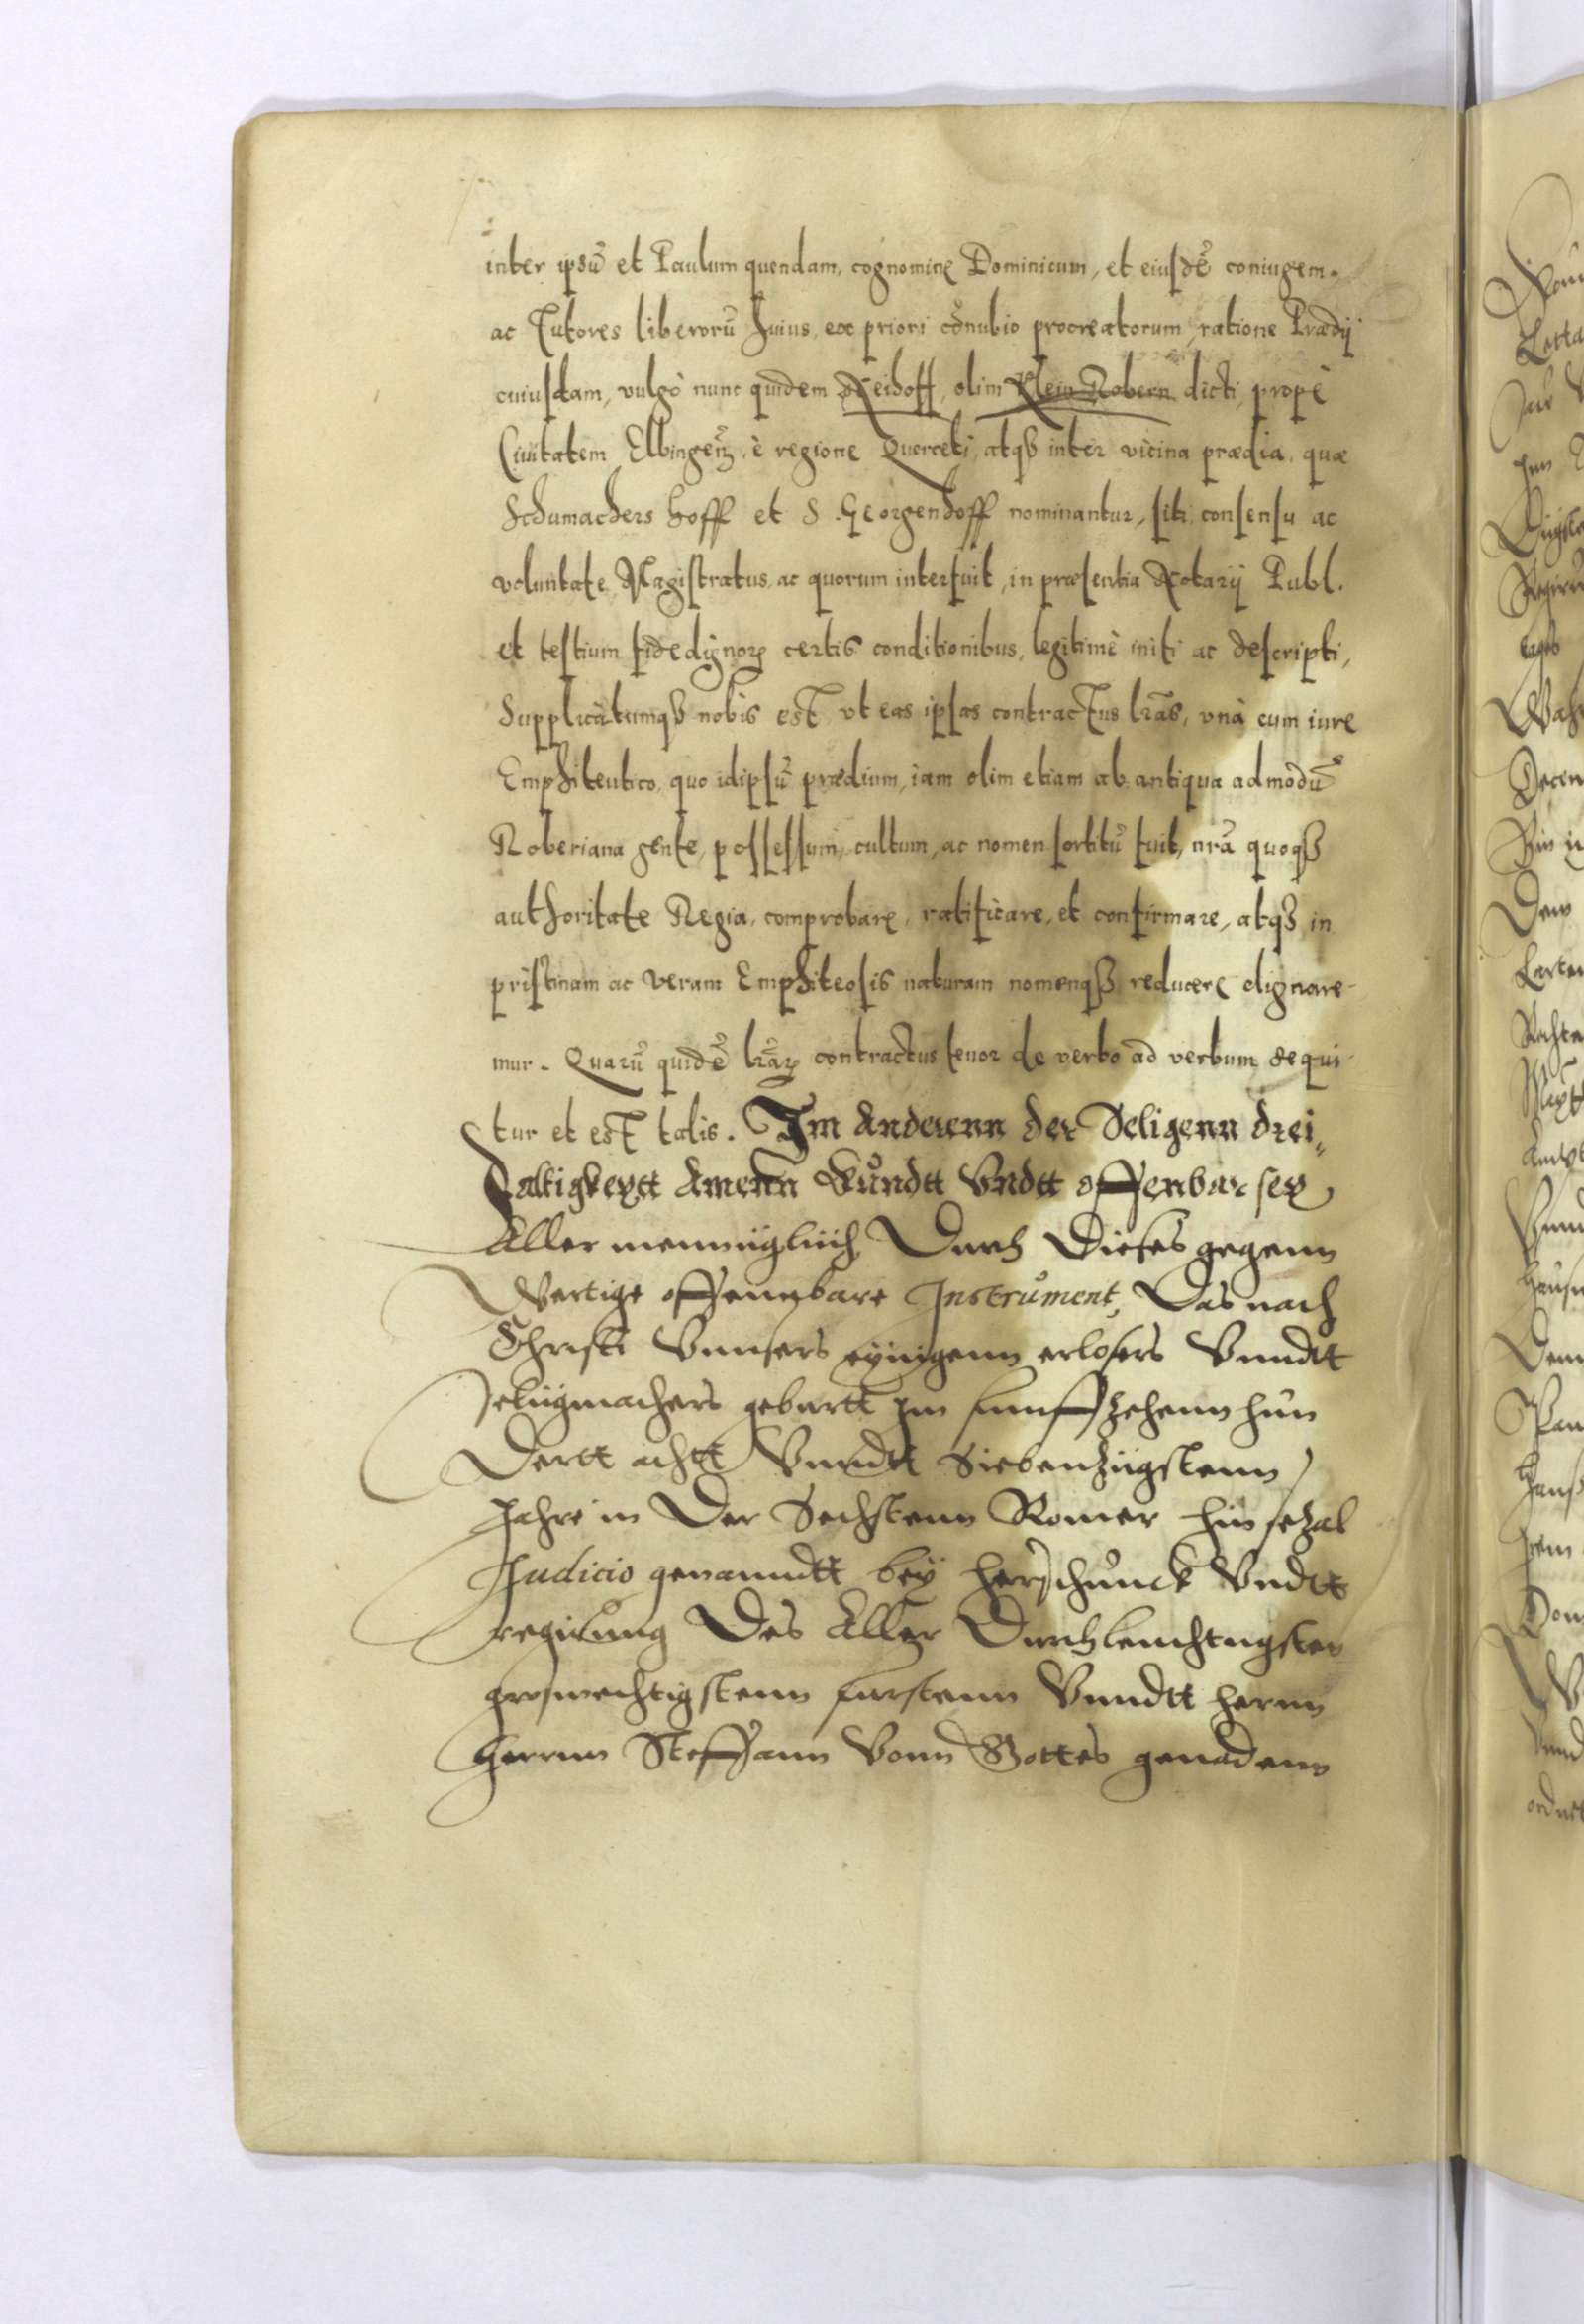 inter ipsũ et Paulum quendam, cognomine Dominicum, et eiusdẽ coniugem.
ac Tutores liberorũ huius, ex priori cõnubio procreatorum, ratione Prædij
cuiusdam, vulgò nunc quidem Neihoff, olim Klein Robern dicti, propè
Ciuitatem Elbingeñ, è regione Querceti, atqꝫ inter vicina prædia, quæ
Schumachers hoff et S. Georgenhoff nominantur, siti, consensu ac
voluntate Magistratus, ac quorum interfuit, in præsentia Notarij Publ.
et testium fidedignoꝝ certis conditionibus, legitimè initi ac descripti,
Supplicatumqꝫ nobis est, vt eas ipsas contractus lr̃as, vnà cum iure
Emphiteutico, quo idipsũ prædium, iam olim etiam ab antiqua admodũ
Roberiana gente, possessum, cultum, ac nomen sortitũ fuit, nr̃a quoqꝫ
authoritate Regia, comprobare, ratificare, et confirmare, atqꝫ in
pristinam ac veram Emphiteosis naturam nomenqꝫ reducere dignare-
mur. Quarũ quidẽ lr̃aꝝ contractus tenor de verbo ad verbum sequi-
tur et est talis. Im Anderenn der Seligenn drei„
faltigkeytt Amenn Kůndtt Vndtt offenbar sey
Aller menniglich Durch Dieses gegenn
Wertige offennbare Instrůment, Das nach
Christi Vnnsers eynigenn erlosers Vnndtt
seligmachers geburtt im funffzehenn hun
Dertt achtt Vnndtt Siebenzigstenn
Jahre in Der Sechstenn Romer Zinsezal
Judicio genanndtt bey herschunck Vndtt
regirung Des Aller Durchleuchtigsten
grosmechtigstenn furstenn Vnndtt hernn
Herrnn Steffann Vonn Gottes genadenn